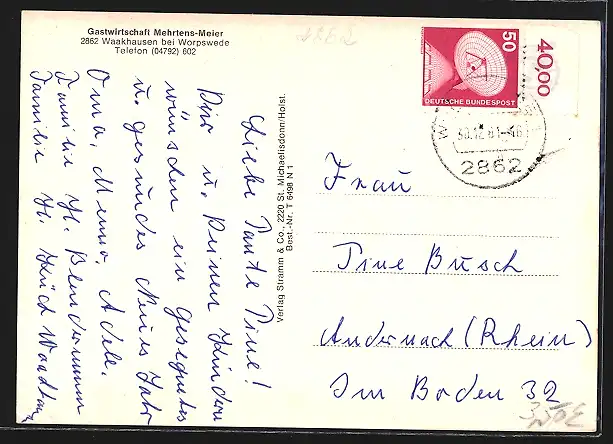 Gastwirtschaft Mehrtens-Meier
2862 Waakhausen bei Worpswede
Telefon (04792) 602
Liebe Tante Tine!
Dir u. Deinen Kindern
wünschen ein gesegnetes
u. gesundes Neues Jahr
Oma, Menno, Adele.
Familie H. Blendermann
Familie H.
Verlag Stramm & Co., 2220 St. Michaelisdonn/Holst.
Best.-Nr. T 6498 N 1
50
DEUTSCHE BUNDESPOST
40,00
30.12.81
2862
Frau
Tine Busch
Andernach (Rhein)
Im Boden 32
3,50€